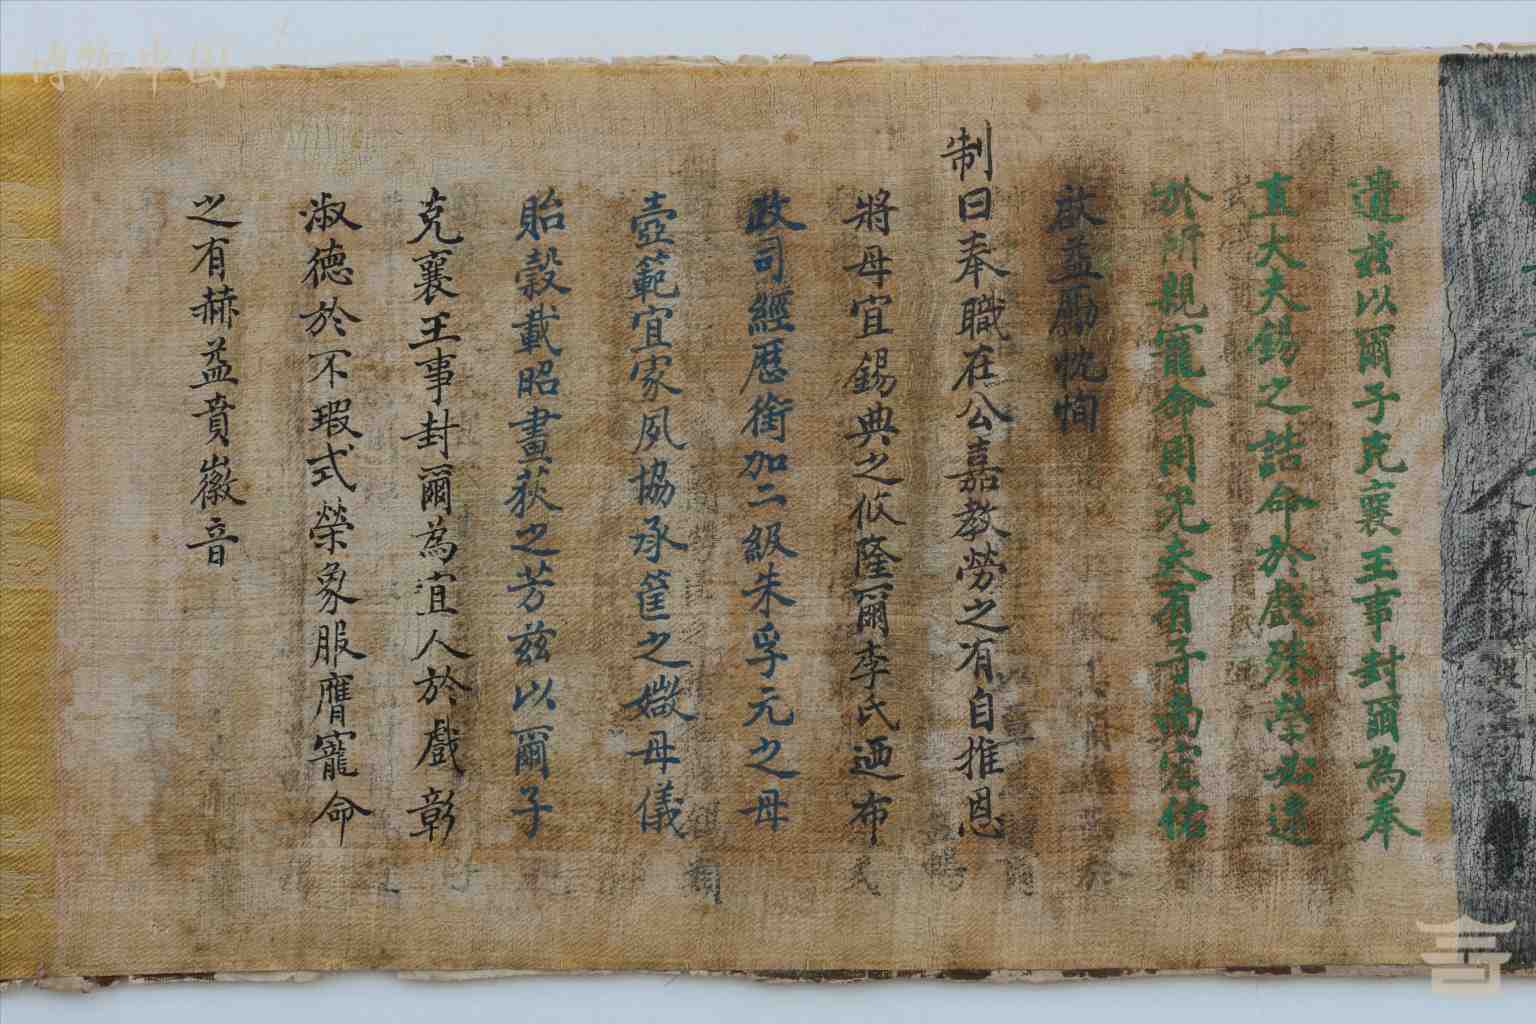 遺茲以爾子克襄王事封爾為奉
直大夫錫之誥命於戲殊榮必逮
於所親寵命用光夫有子尚宏佑
啟益勵忱恂
制曰奉職在公嘉教勞之有自推恩
將母宜錫典之攸隆爾李氏迺布
政司經歷銜加二級朱孚元之母
壼範宜家夙協承筐之媺母儀
貽穀載昭畫荻之芳茲以爾子
克襄王事封爾為宜人於戲彰
淑德於不瑕式榮象服膺寵命
之有赫益賁徽音
博物中国